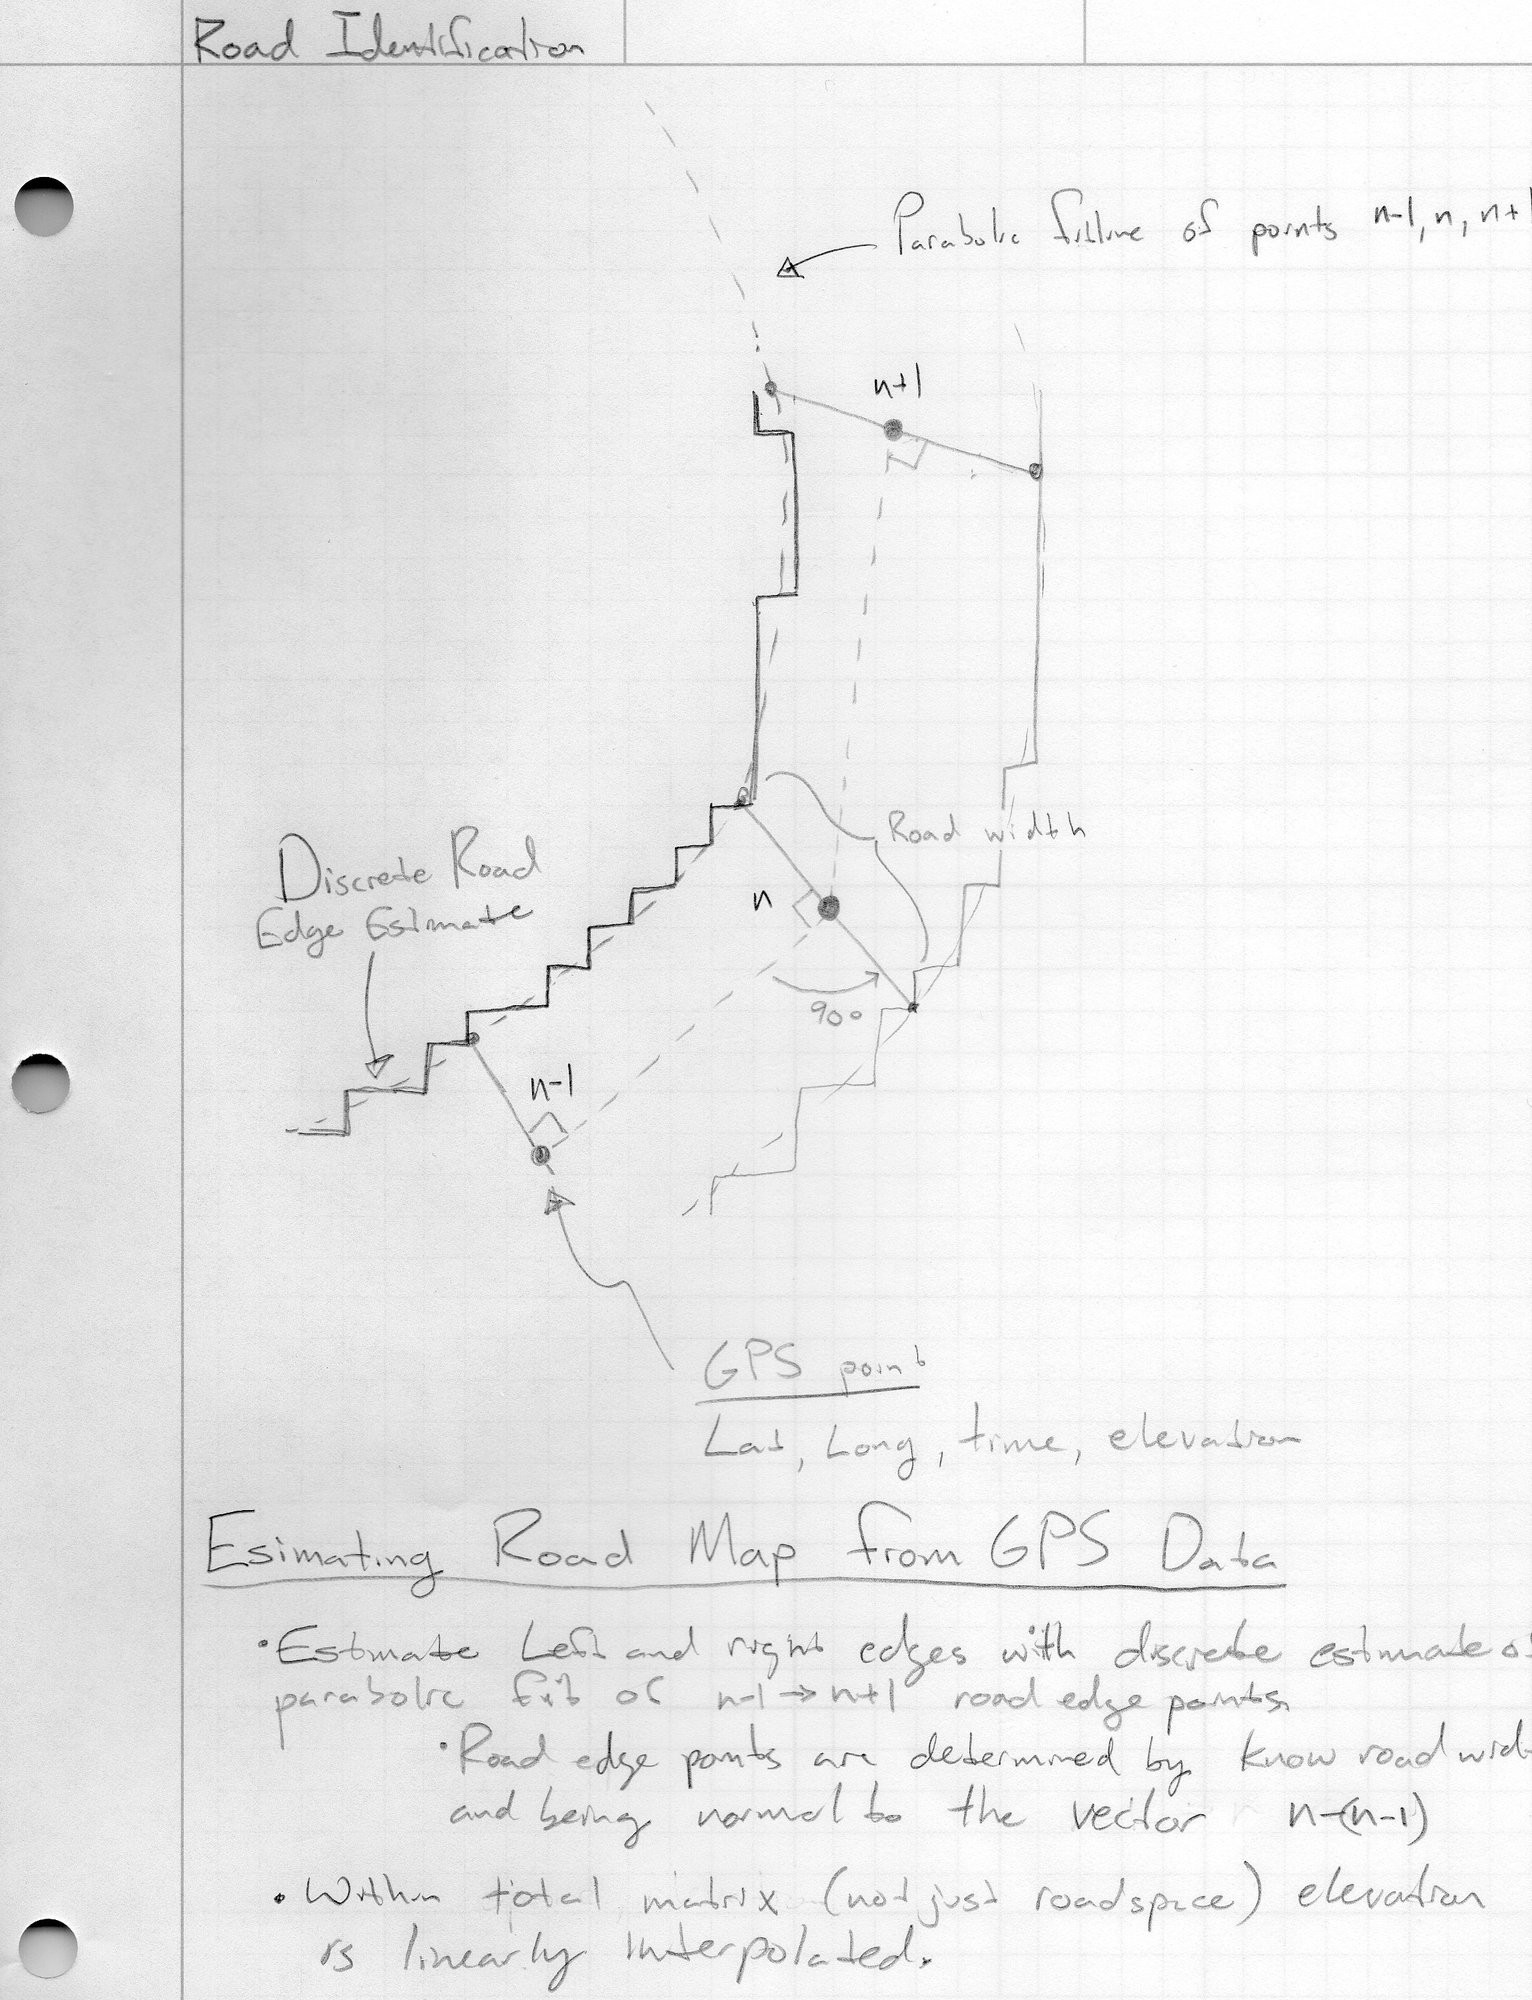 Road Identification
Parabolic fitline of points n-1, n, n+1
n+1
Road width
Discrete Road
Edge Estimate
n
90°
n-1
GPS point
Lat, Long, time, elevation
Esimating Road Map from GPS Data
• Estimate Left and right edges with discrete estimate of
parabolic fit of n-1 → n+1 road edge points.
• Road edge points are determined by know road wid
and being normal to the vector n-(n-1)
• Within total matrix (not just roadspace) elevation
is linearly interpolated.